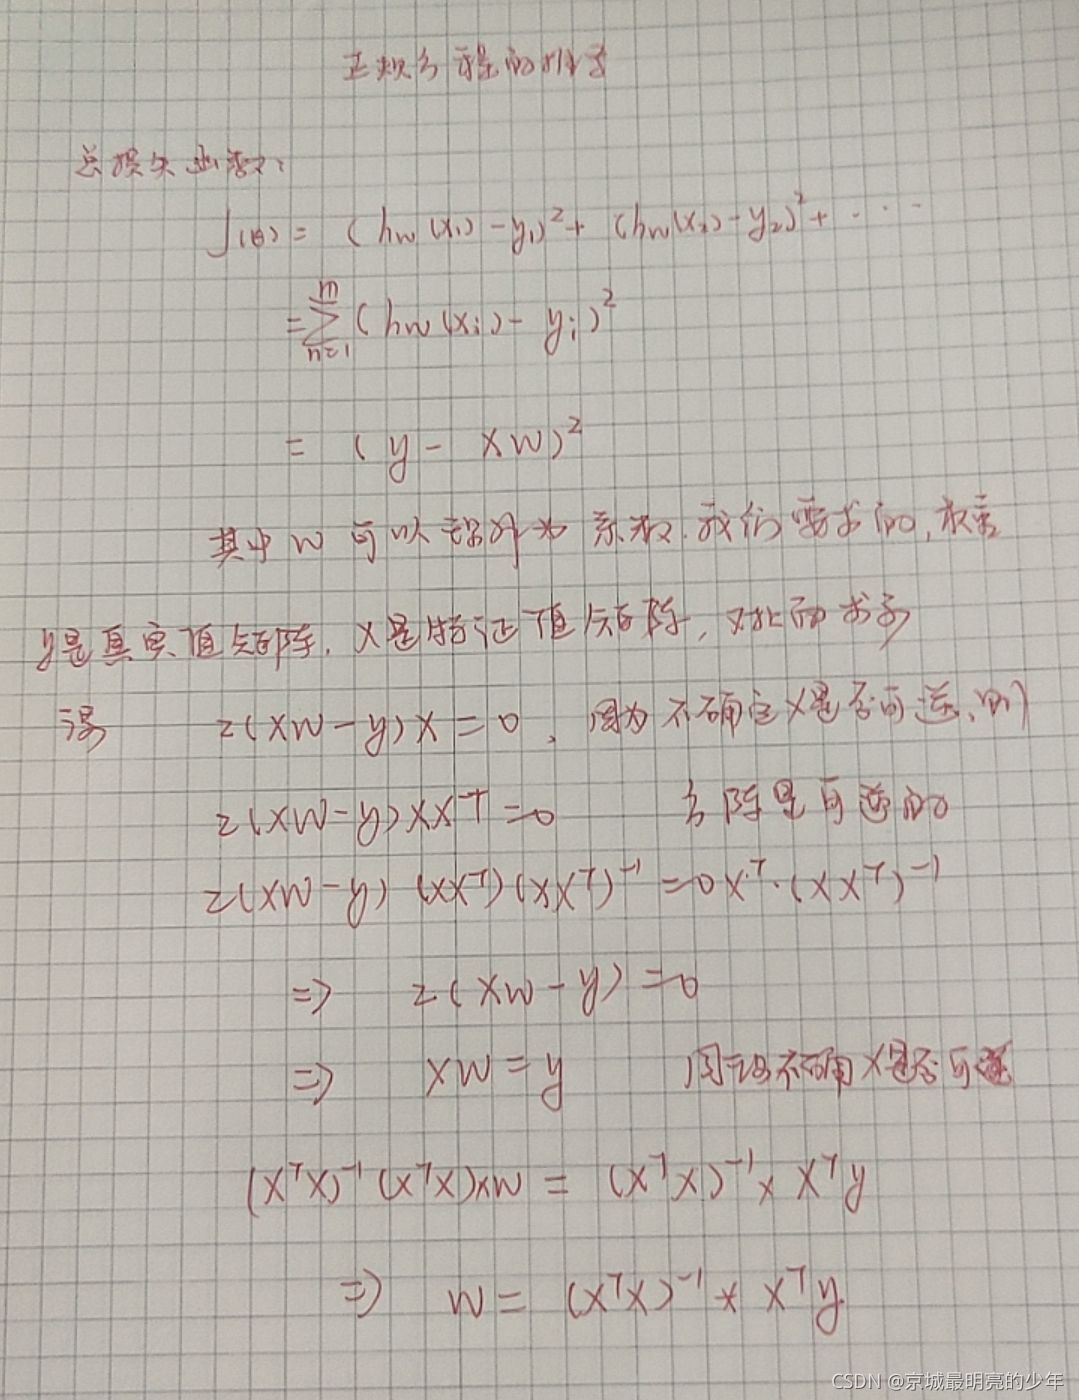 正规方程的推导
总损失函数:
J(θ) = (hw(x₁) - y₁)² + (hw(x₂) - y₂)² + ···
= ∑ᵐₙ₌₁ (hw(xᵢ) - yᵢ)²
= (y - Xw)²
其中w可以理解为系数,我们要求的,
y是真实值矩阵,X是特征值矩阵,对此而求导
得 2(Xw-y)X=0, 因为不确定X是否可逆,则
2(Xw-y)XXᵀ=0 方阵是可逆的
2(Xw-y)(XXᵀ)(XXᵀ)⁻¹=0Xᵀ·(XXᵀ)⁻¹
=> 2(Xw-y)=0
=> Xw=y 因不确X是否可逆
(XᵀX)⁻¹(XᵀX)Xw = (XᵀX)⁻¹ * Xᵀy
=> w = (XᵀX)⁻¹ * Xᵀy
CSDN @京城最明亮的少年